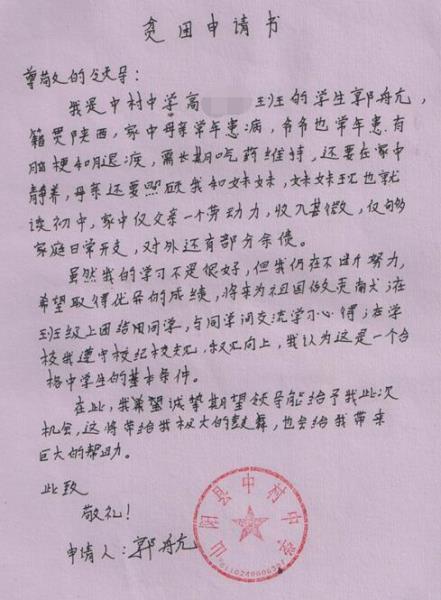 贫困申请书
尊敬的领导：
我是中村中学高 班的学生郭舟亢，
籍贯陕西，家中母亲常年患病，爷爷也常年患有
脑梗和腿疾，需长期吃药维持，还要在家中
静养，母亲还要照顾我和妹妹，妹妹现也就
读初中，家中仅父亲一个劳动力，收入甚微，仅够
家庭日常开支，对外还有部分余债。
虽然我的学习不是很好，但我仍在不断努力，
希望取得优异的成绩，将来为祖国做贡献；在
班级上团结同学，与同学间交流学习心得；在学
校我遵守校纪校规，积极向上，我认为这是一个合
格中学生的基本条件。
在此，我希望诚挚期望领导能给予我此次
机会，这将带给我极大的鼓舞，也会给我带来
巨大的帮助。
此致
敬礼！
申请人：郭舟亢
山阳县中村中学